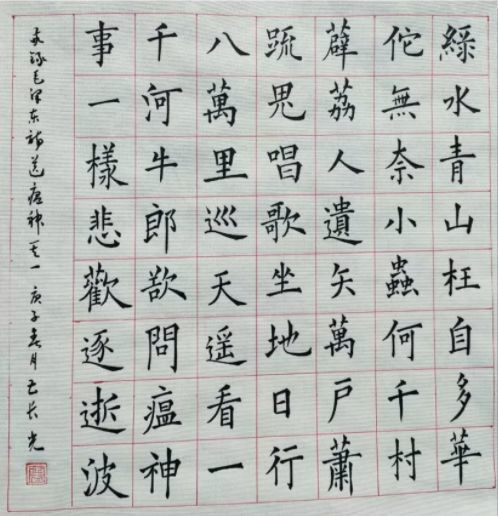 綠水青山枉自多華
佗無奈小蟲何千村
薜荔人遺矢萬戶蕭
䟽鬼唱歌坐地日行
八萬里巡天遥看一
千河牛郎欲問瘟神
事一樣悲歡逐逝波
毛泽东诗送瘟神其一 庚子 月 长光